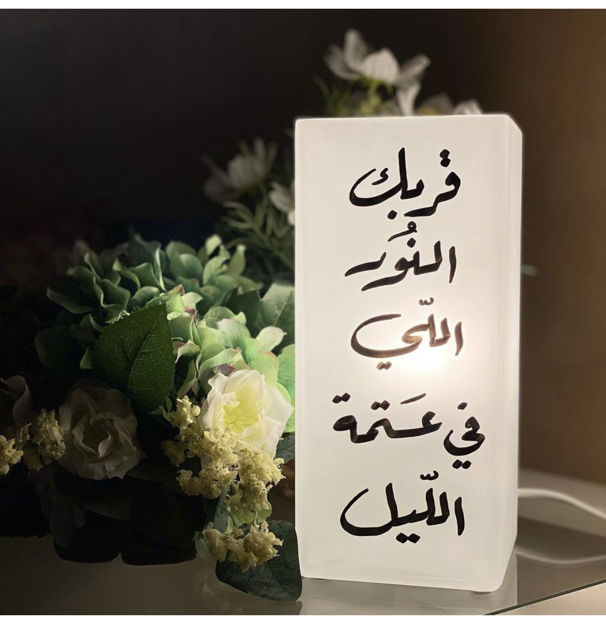 قربك
النُور
اللّي
في عَتمة
اللّيل